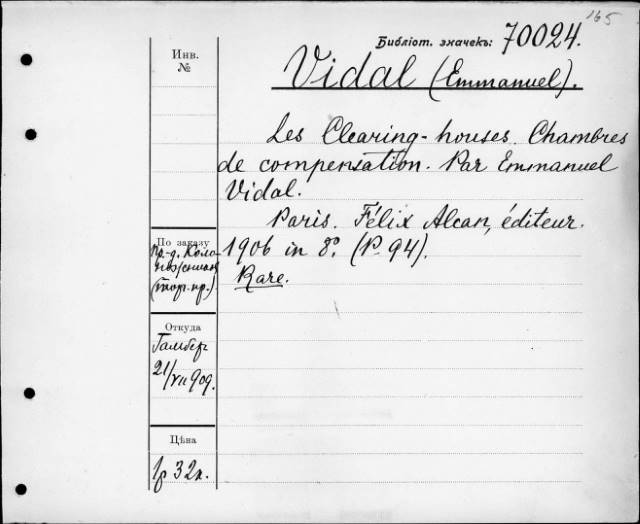 165
Библіот. значекъ: 70024.
Инв.
№
Vidal (Emmanuel).
Les Clearing-houses. Chambres
de compensation. Par Emmanuel
Vidal.
Paris. Félix Alcan, éditeur.
1906 in 8º. (P. 94).
Rare.
По заказу
Пр-д.
(тор. пр.)
Откуда
Гамбер
21/VII 909.
Цѣна
1р 32к.